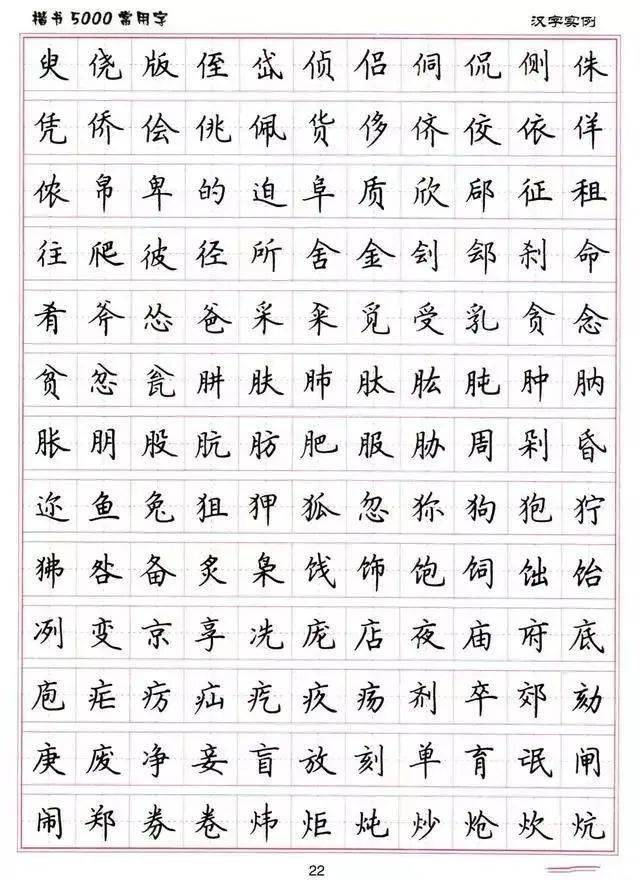 楷书5000常用字 汉字实例
臾 侥 版 侄 岱 侦 侣 侗 侃 侧 侏
凭 侨 侩 佻 佩 货 侈 侪 佼 依 佯
侬 帛 卑 的 迫 阜 质 欣 郈 征 徂
往 爬 彼 径 所 舍 金 刽 郐 刹 命
肴 斧 怂 爸 采 籴 觅 受 乳 贪 念
贫 忿 瓮 肼 肤 肺 肽 肱 肫 肿 肭
胀 朋 股 肮 肪 肥 服 胁 周 剁 昏
迩 鱼 兔 狙 狎 狐 忽 狝 狗 狍 狞
狒 咎 备 炙 枭 饯 饰 饱 饲 饳 饴
冽 变 京 享 冼 庞 店 夜 庙 府 底
庖 疟 疠 疝 疙 疚 疡 剂 卒 郊 劾
庚 废 净 妾 盲 放 刻 单 育 氓 闸
闹 郑 券 卷 炜 炬 炖 炒 炝 炊 炕
22